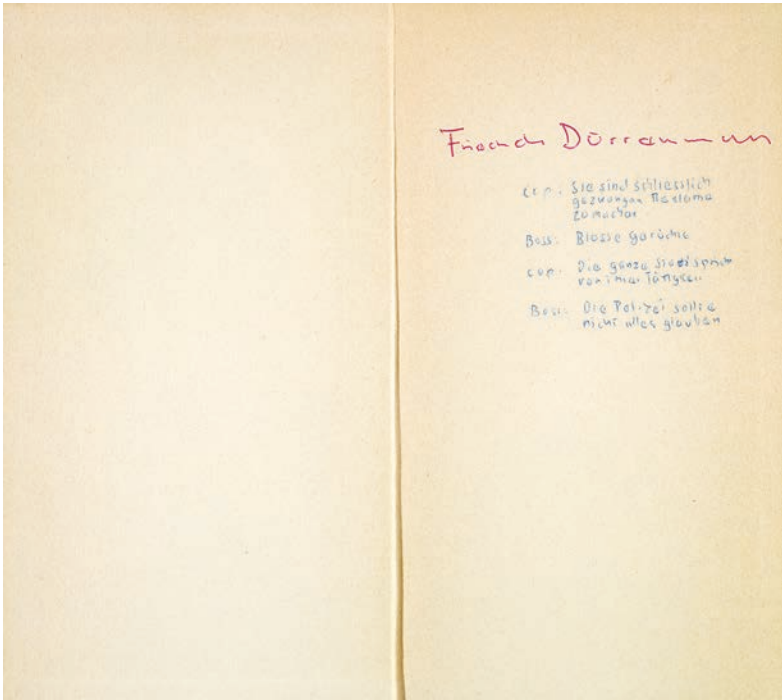 Friedrich Dürrenmatt
Cop: Sie sind schliesslich
gezwungen Reklame
zu machen
Boss: Blosse Gerüchte
Cop: Die ganze Stadt spricht
von
Boss: Die Polizei sollte
nicht alles glauben